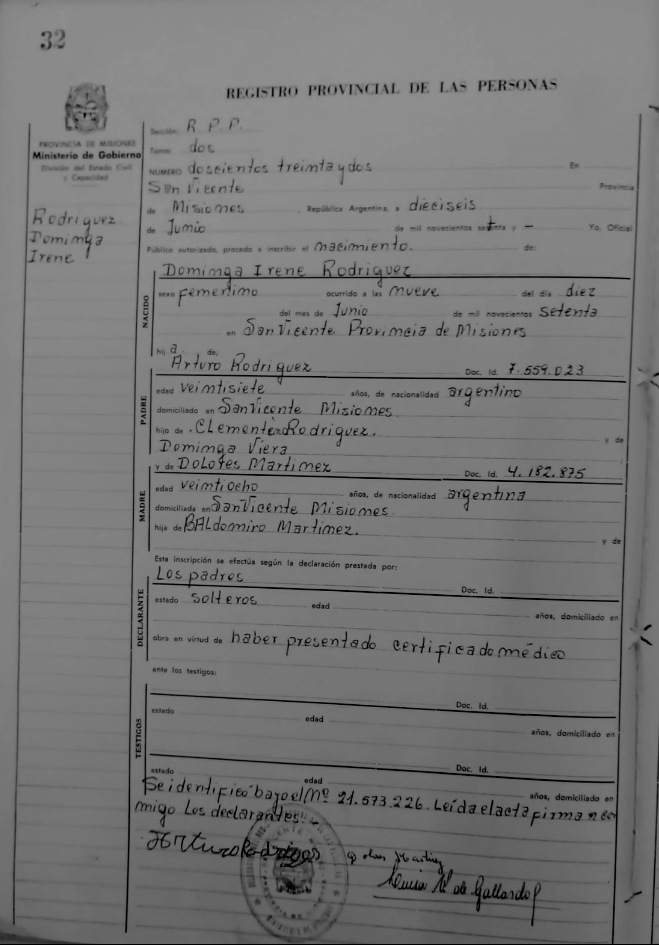 32
REGISTRO PROVINCIAL DE LAS PERSONAS
PROVINCIA DE MISIONES
Ministerio de Gobierno
División del Estado Civil
y Capacidad
Rodriguez
Dominga
Irene
Sección R. P. P.
Tomo dos
NUMERO doscientos treinta y dos En
San Vicente Provincia
de Misiones , República Argentina, a dieciseis
de Junio de mil novecientos setenta y — Yo, Oficial
Público autorizado, procedo a inscribir el nacimiento. de:
NACIDO
Dominga Irene Rodriguez
sexo femenino ocurrido a las nueve del día diez
del mes de Junio de mil novecientos setenta
en San Vicente Provincia de Misiones
hij a de:
PADRE
Arturo Rodriguez Doc. Id. 7.559.023
edad veintisiete años, de nacionalidad argentino
domiciliado en San Vicente Misiones
hijo de Clemente Rodriguez. y de
Dominga Viera
MADRE
y de Dolores Martinez Doc. Id. 4.182.875
edad veintiocho años, de nacionalidad argentina
domiciliada en San Vicente Misiones
hija de BALdomiro Martinez. y de
Esta inscripción se efectúa según la declaración prestada por:
DECLARANTE
Los padres Doc. Id.
estado solteros edad años, domiciliado en
obra en virtud de haber presentado certificado médico
ante los testigos:
TESTIGOS
Doc. Id.
estado edad años, domiciliado en
Doc. Id.
estado edad años, domiciliado en
Se identificó bajo el Nº 21.573.226. Leída el acta firman con
migo Los declarantes.
Arturo Rodriguez
de Gallardo